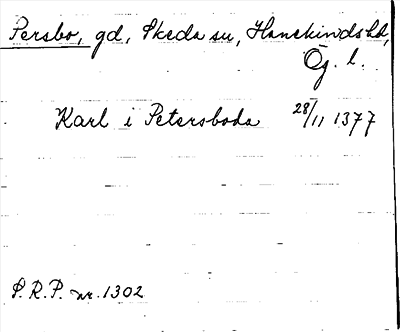 Persbo, gd, Skeda sn, Hanekindshd,
Ög. l.
Karl i Petersboda 28/11 1377
S.R.P. nr. 1302